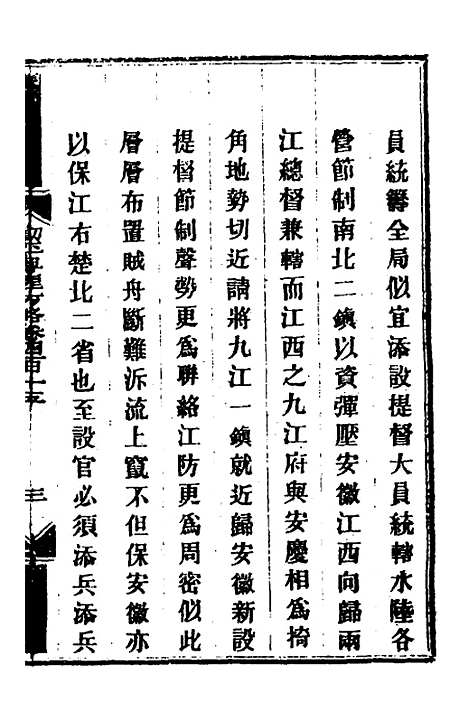 員統籌全局似宜添設提督大員統轄水陸各
營節制南北二鎮以資彈壓安徽江西向歸兩
江總督兼轄而江西之九江府與安慶相為掎
角地勢切近請將九江一鎮就近歸安徽新設
提督節制聲勢更為聯絡江防更為周密似此
層層布置賊舟斷難泝流上竄不但保安徽亦
以保江右楚北二省也至設官必須添兵添兵
三